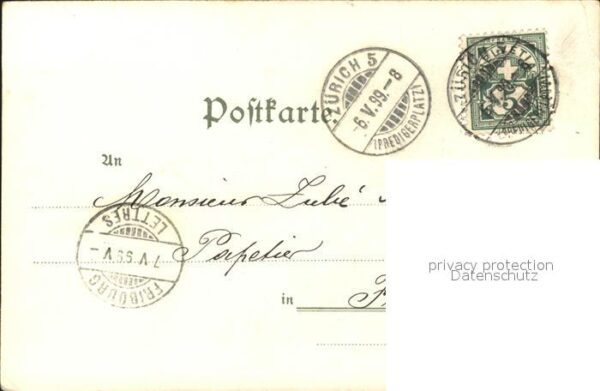 ZÜRICH 5
-6.V.99.-8
(PREDIGERPLATZ)
HELVETIA
5
Postkarte.
An
Monsieur
Papetier
in
FRIBOURG
7.V.99.V-
LETTRES
privacy protection
Datenschutz